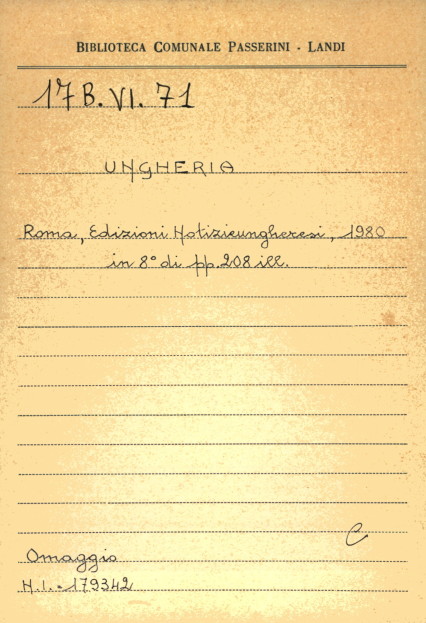 BIBLIOTECA COMUNALE PASSERINI - LANDI
17B.VI.71
UNGHERIA
Roma, Edizioni Notizieungheresi, 1980
in 8° di pp. 208 ill.
C
Omaggio
N.I. - 179342